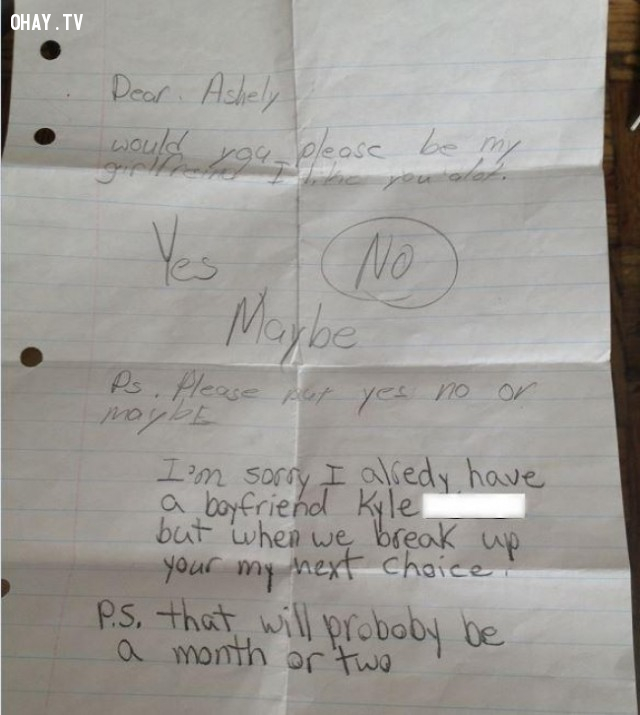 OHAY.TV
Dear. Ashely
would you please be my
girlfreind I like you alot.
Yes No
Maybe
Ps. Please put yes no or
maybe
I'm sorry I alredy have
a boyfriend Kyle
but when we break up
your my next choice.
P.S. that will proboby be
a month or two